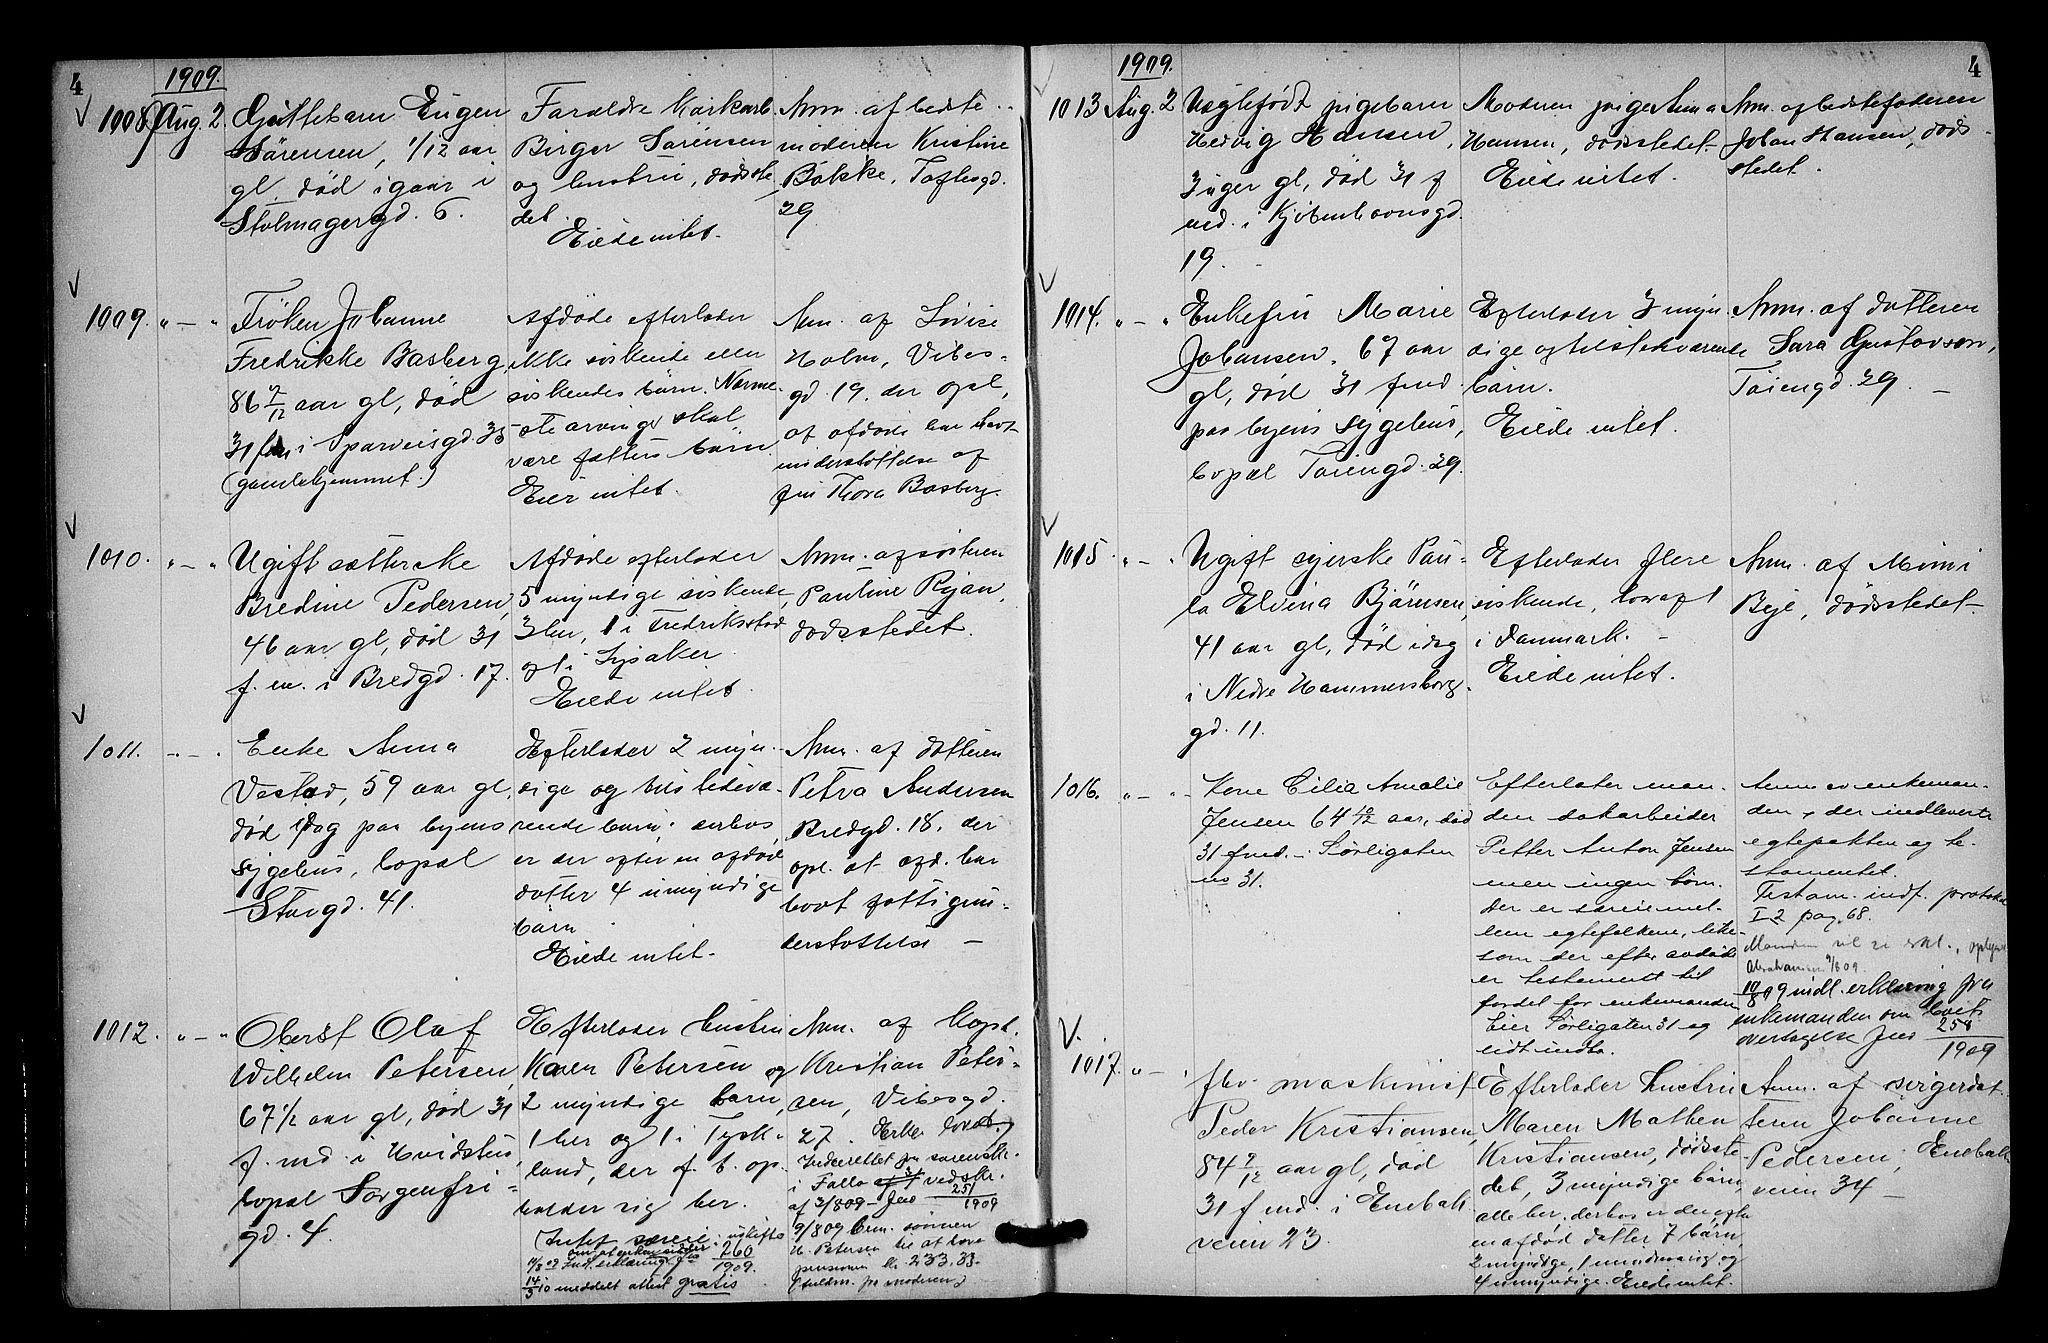 4
1909.
1008 Aug. 2.
Guttebarn Eugen
Sørensen, 1/12 aar
gl. død igaar i
Stolmagergd. 6.
Foreldre
Birger Sørensen
og hustru, dødste
det.
Eiede intet.
Anm. af bedste
moderen Kristine
Bakke, Toftesgd.
29
1009. " — "
Frøken Johanne
Fredrikke Basberg,
86 7/12 aar gl, død
31 f.m. i Sparveisgd. 35
(gamlehjemmet.)
Afdøde efterlader
ikke søskende eller
søskendes børn. Nærme
ste arvinger skal
være fætters børn.
Eier intet.
Anm. af Lovise
Holm, Vibes-
gd 19, der opl,
at afdøde har havt
understøttelse af
fru Thora Basberg.
1010. " — "
Ugift sætterske
Bredine Pedersen,
46 aar gl, død 31
f. m. i Bredgd. 17.
Afdøde efterlader
5 myndige søskende,
3 her, 1 i Fredriksstad
og 1 i Lysaker
Eiede intet.
Anm. af søsteren
Pauline Ryan,
dødsstedet.
1011. " — "
Enke Anna
Vestad, 59 aar gl,
død idag paa byens
sygehus, bopæl
Storgd. 41.
Efterlader 2 myn-
dige og tilstedevæ-
rende børn. derhos
er der efter en afdød
datter 4 umyndige
børn
Eiede intet.
Anm. af datteren
Petra Andersen
Bredgd. 18, der
opl. at afd. har
havt fattigun-
derstøttelse —
1012. " — "
Oberst Olaf
Wilhelm Petersen,
67 1/2 aar gl, død 31
f. md. i Hvidstus,
bopæl Sorgenfri-
gd. 4.
Efterlader hustru
Karen Petersen og
2 myndige børn,
1 her og 1 i Tysk-
land, der f. t. op-
holder sig her.
260
1909.
meddelt attest gratis
Anm. af Kapt.
Kristian Peter-
sen, Vibesgd.
27.
i Follo
af 3/8 09 Jno 251
1909
9/8 09 sønnen
H. Petersen
pensionen kr. 233.33
1909.
4
1013 Aug. 2
Uægtefødt pigebarn
Hedvig Hansen,
3 uger gl, død 31 f
md. i Kjøbenhavnsgd.
19.
Moderen pige Anna
Hansen, dødsstedet
Eiede intet.
Anm. af bedstefaderen
Johan Hansen, døds-
stedet.
1014. " — "
Enkefru Marie
Johansen, 67 aar
gl, død 31 f md.
paa byens sygehus,
bopæl Tøiengd. 29.
Efterlader 3 myn
dige og tilstedeværende
børn.
Eiede intet.
Anm. af datteren
Sara Gustavson,
Tøiengd. 29. —
1015 " — "
Ugift syerske Pau-
la Elvina Bjørnsen,
41 aar gl, død idag
i Nedre Hammersborg-
gd. 11.
Efterlader flere
søskende, hvoraf 1
i Danmark. —
Eiede intet.
Anm. af Mimi
Beje, dødsstedet
1016. " — "
Kone Cilie Amalie
Jensen 64 4/12 aar, død
31 f.md. i Sørligaten
no 31.
Efterlater man-
den sakarbeider
Petter Anton Jensen
men ingen børn.
Der er særeie mel-
lem egtefolkene, like
som der efter avdøde
er testament til
fordel for enkemanden
Eier Sørligaten 31 og
lidt indbo.
Anm av enkeman-
den, der indleverte
egtepakten og te-
stamentet.
Testam. indf. protokol
I 2 pag. 68.
10/8 09 indl. erklæring fra
enkemanden om
overtagelse Jno 258
1909
1017. " — "
fhv. maskinist
Peder Kristiansen,
84 7/12 aar gl, død
31 f md. i Enebak-
veien 23.
Efterlader hustru
Maren Mathea
Kristiansen, dødsste-
det, 3 myndige børn,
alle her, derhos er der efter
en afdød datter 7 børn,
2 myndige, 1 mindreaarig og
4 umyndige. Eiede intet.
Anm. af svigerdat-
teren Johanne
Pedersen, Enebak-
veien 34 —